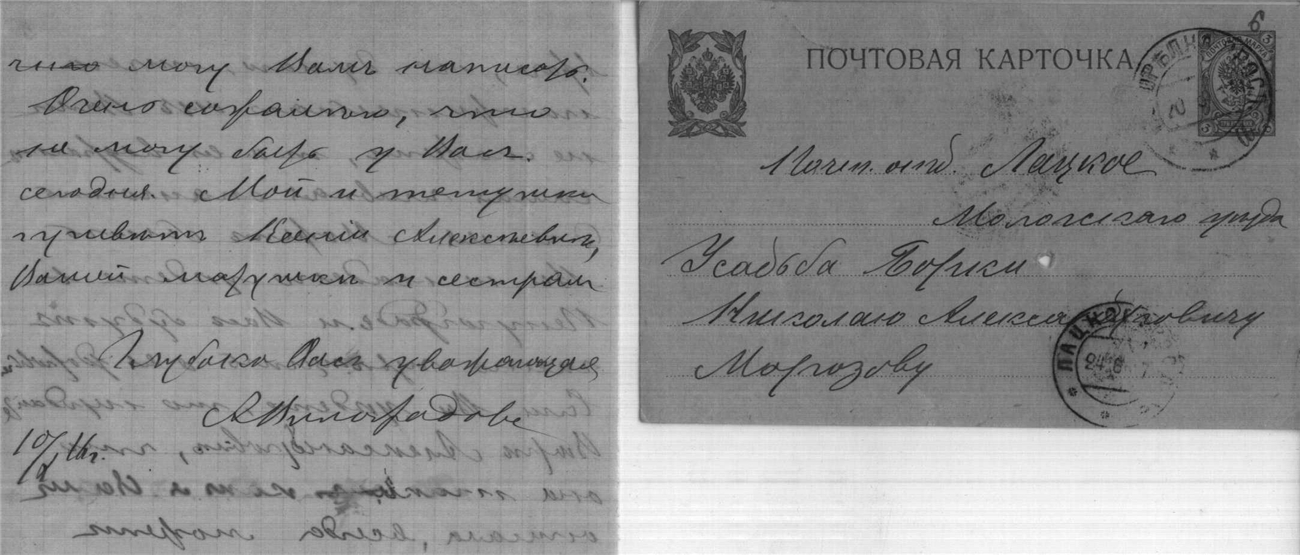 что могу Вамъ написать.
Очень сожалѣю, что
не могу быть у Васъ
сегодня. Мой и тетушки
привѣтъ Ксеніи Алексѣевнѣ,
Вашей матушкѣ и сестрамъ
Глубоко Васъ уважающая
А Виноградова
ПОЧТОВАЯ КАРТОЧКА
6
Почт. отд. Лацкое
Моложскаго уѣзда
Усадьба Борки
Николаю Александровичу
Морозову
ЛАЦКОЕ